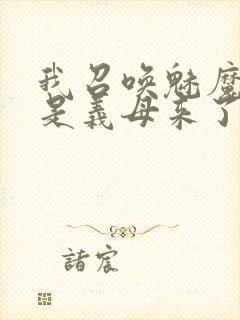 我召唤魅魔
是义母来了
諸宸